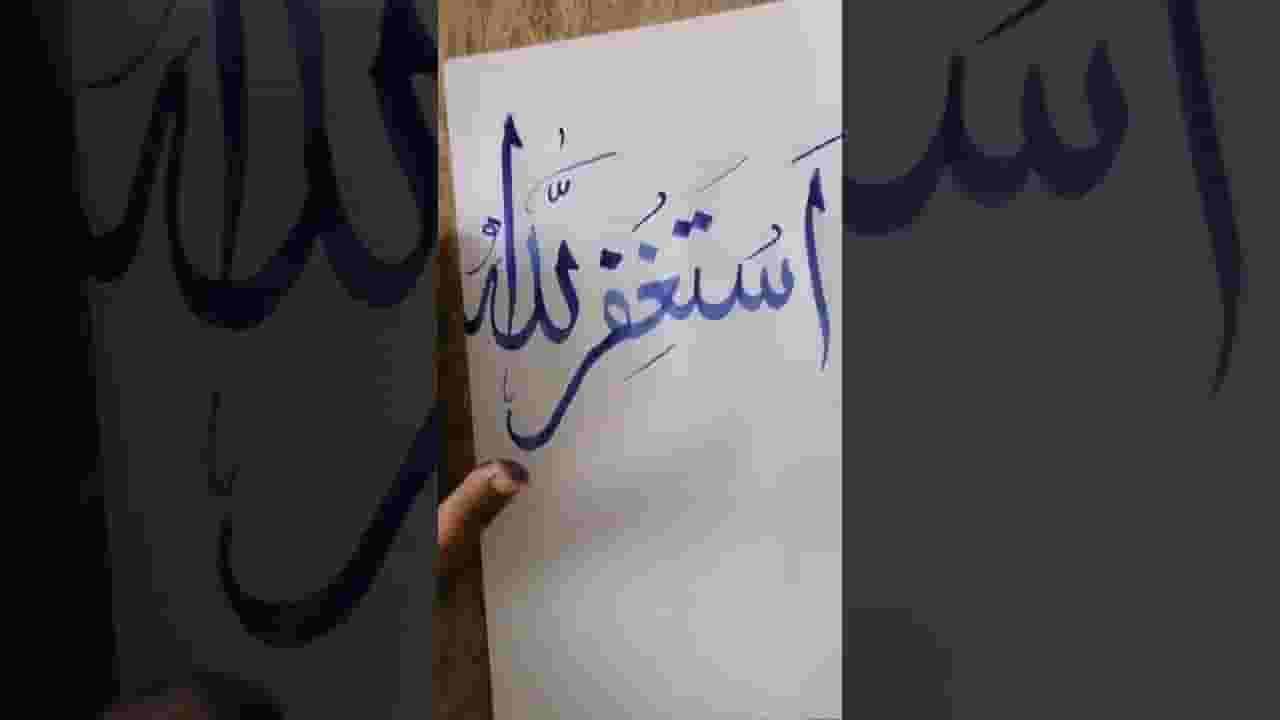 اَستَغفِرُاللّٰهَ